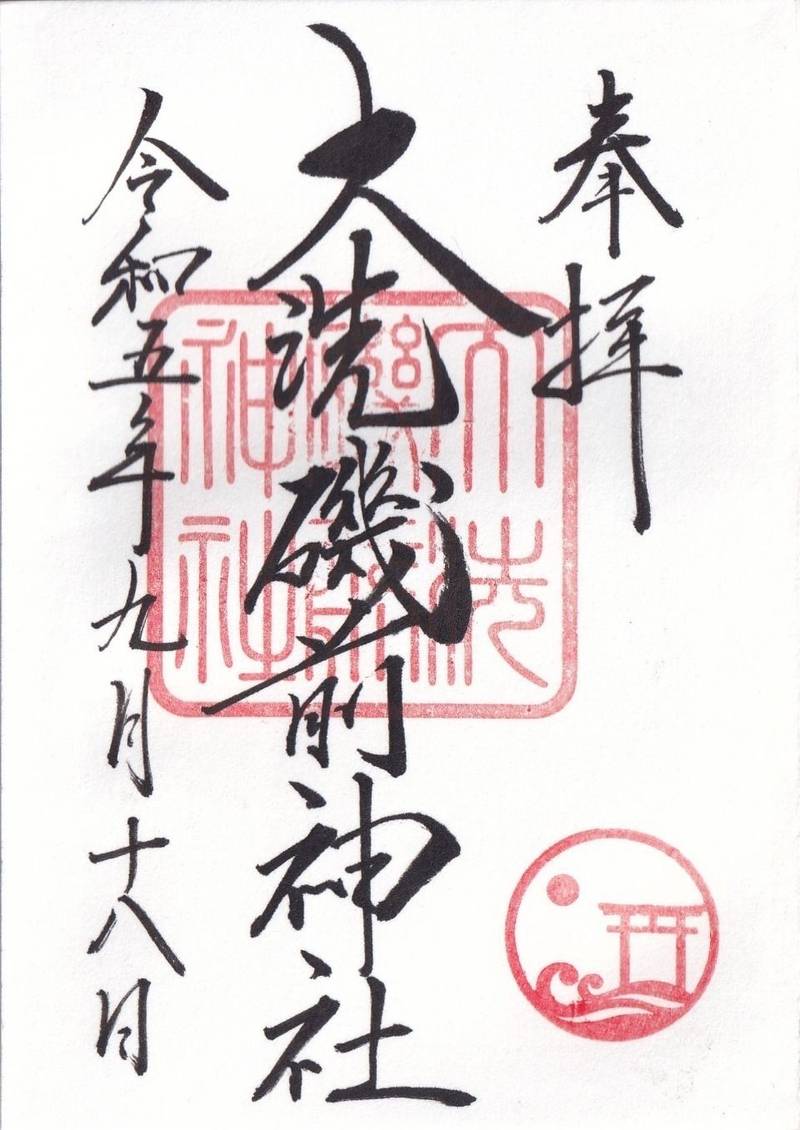 奉拝
大洗磯前神社
令和五年九月十八日
大洗
神社